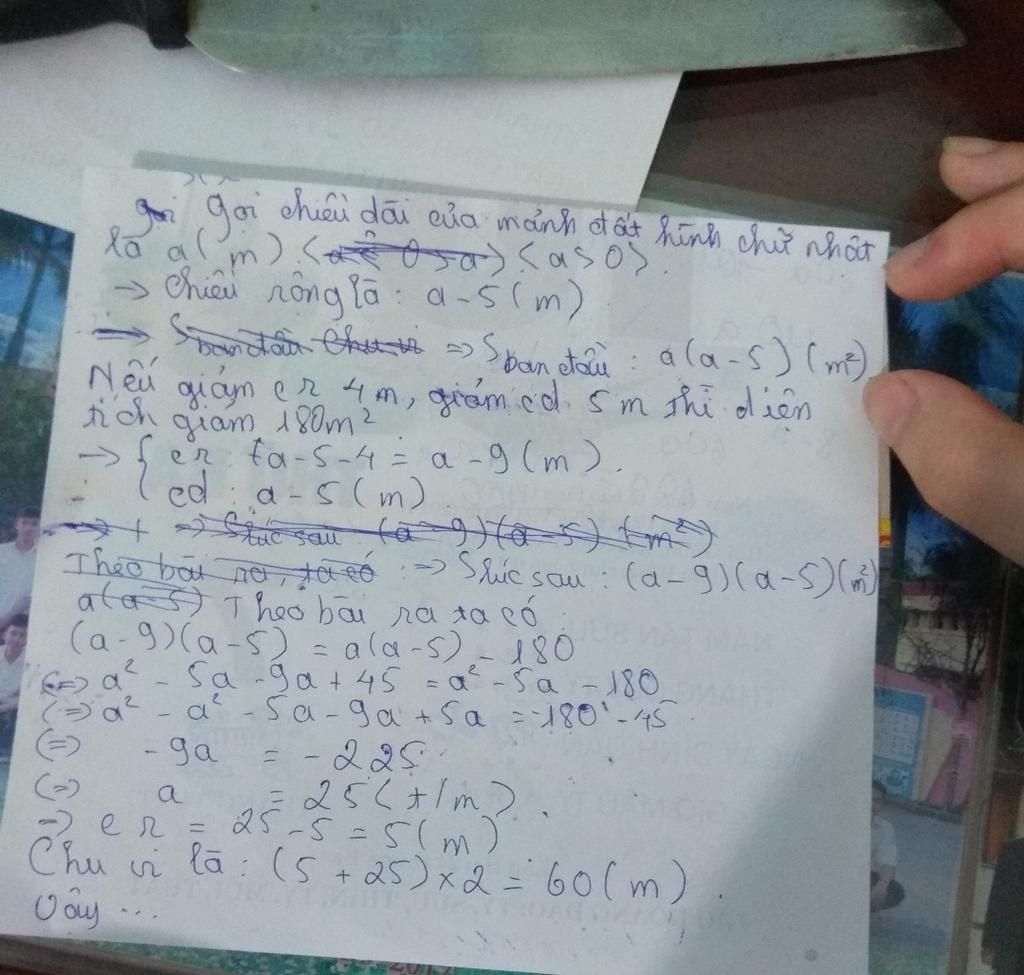 gọi chiều dài của mảnh đất hình chữ nhật
là a(m) <a>0>
→ Chiều rộng là: a-5(m)
=> S ban đầu : a(a-5)(m²)
Nếu giảm cr 4m, giảm cd 5m thì diện
tích giảm 180m²
→ { cr : a-5-4 = a-9(m).
{ cd : a-5(m)
=> S lúc sau : (a-9)(a-5)(m²)
Theo bài ra ta có
(a-9)(a-5) = a(a-5)-180
<=> a² - 5a -9a + 45 = a² - 5a - 180
<=> a² - a² - 5a - 9a + 5a = -180 - 45
<=> -9a = -225
<=> a = 25(t/m)
=> cr = 25-5 = 5(m)
Chu vi là : (5 + 25)×2 = 60(m).
Vậy ...